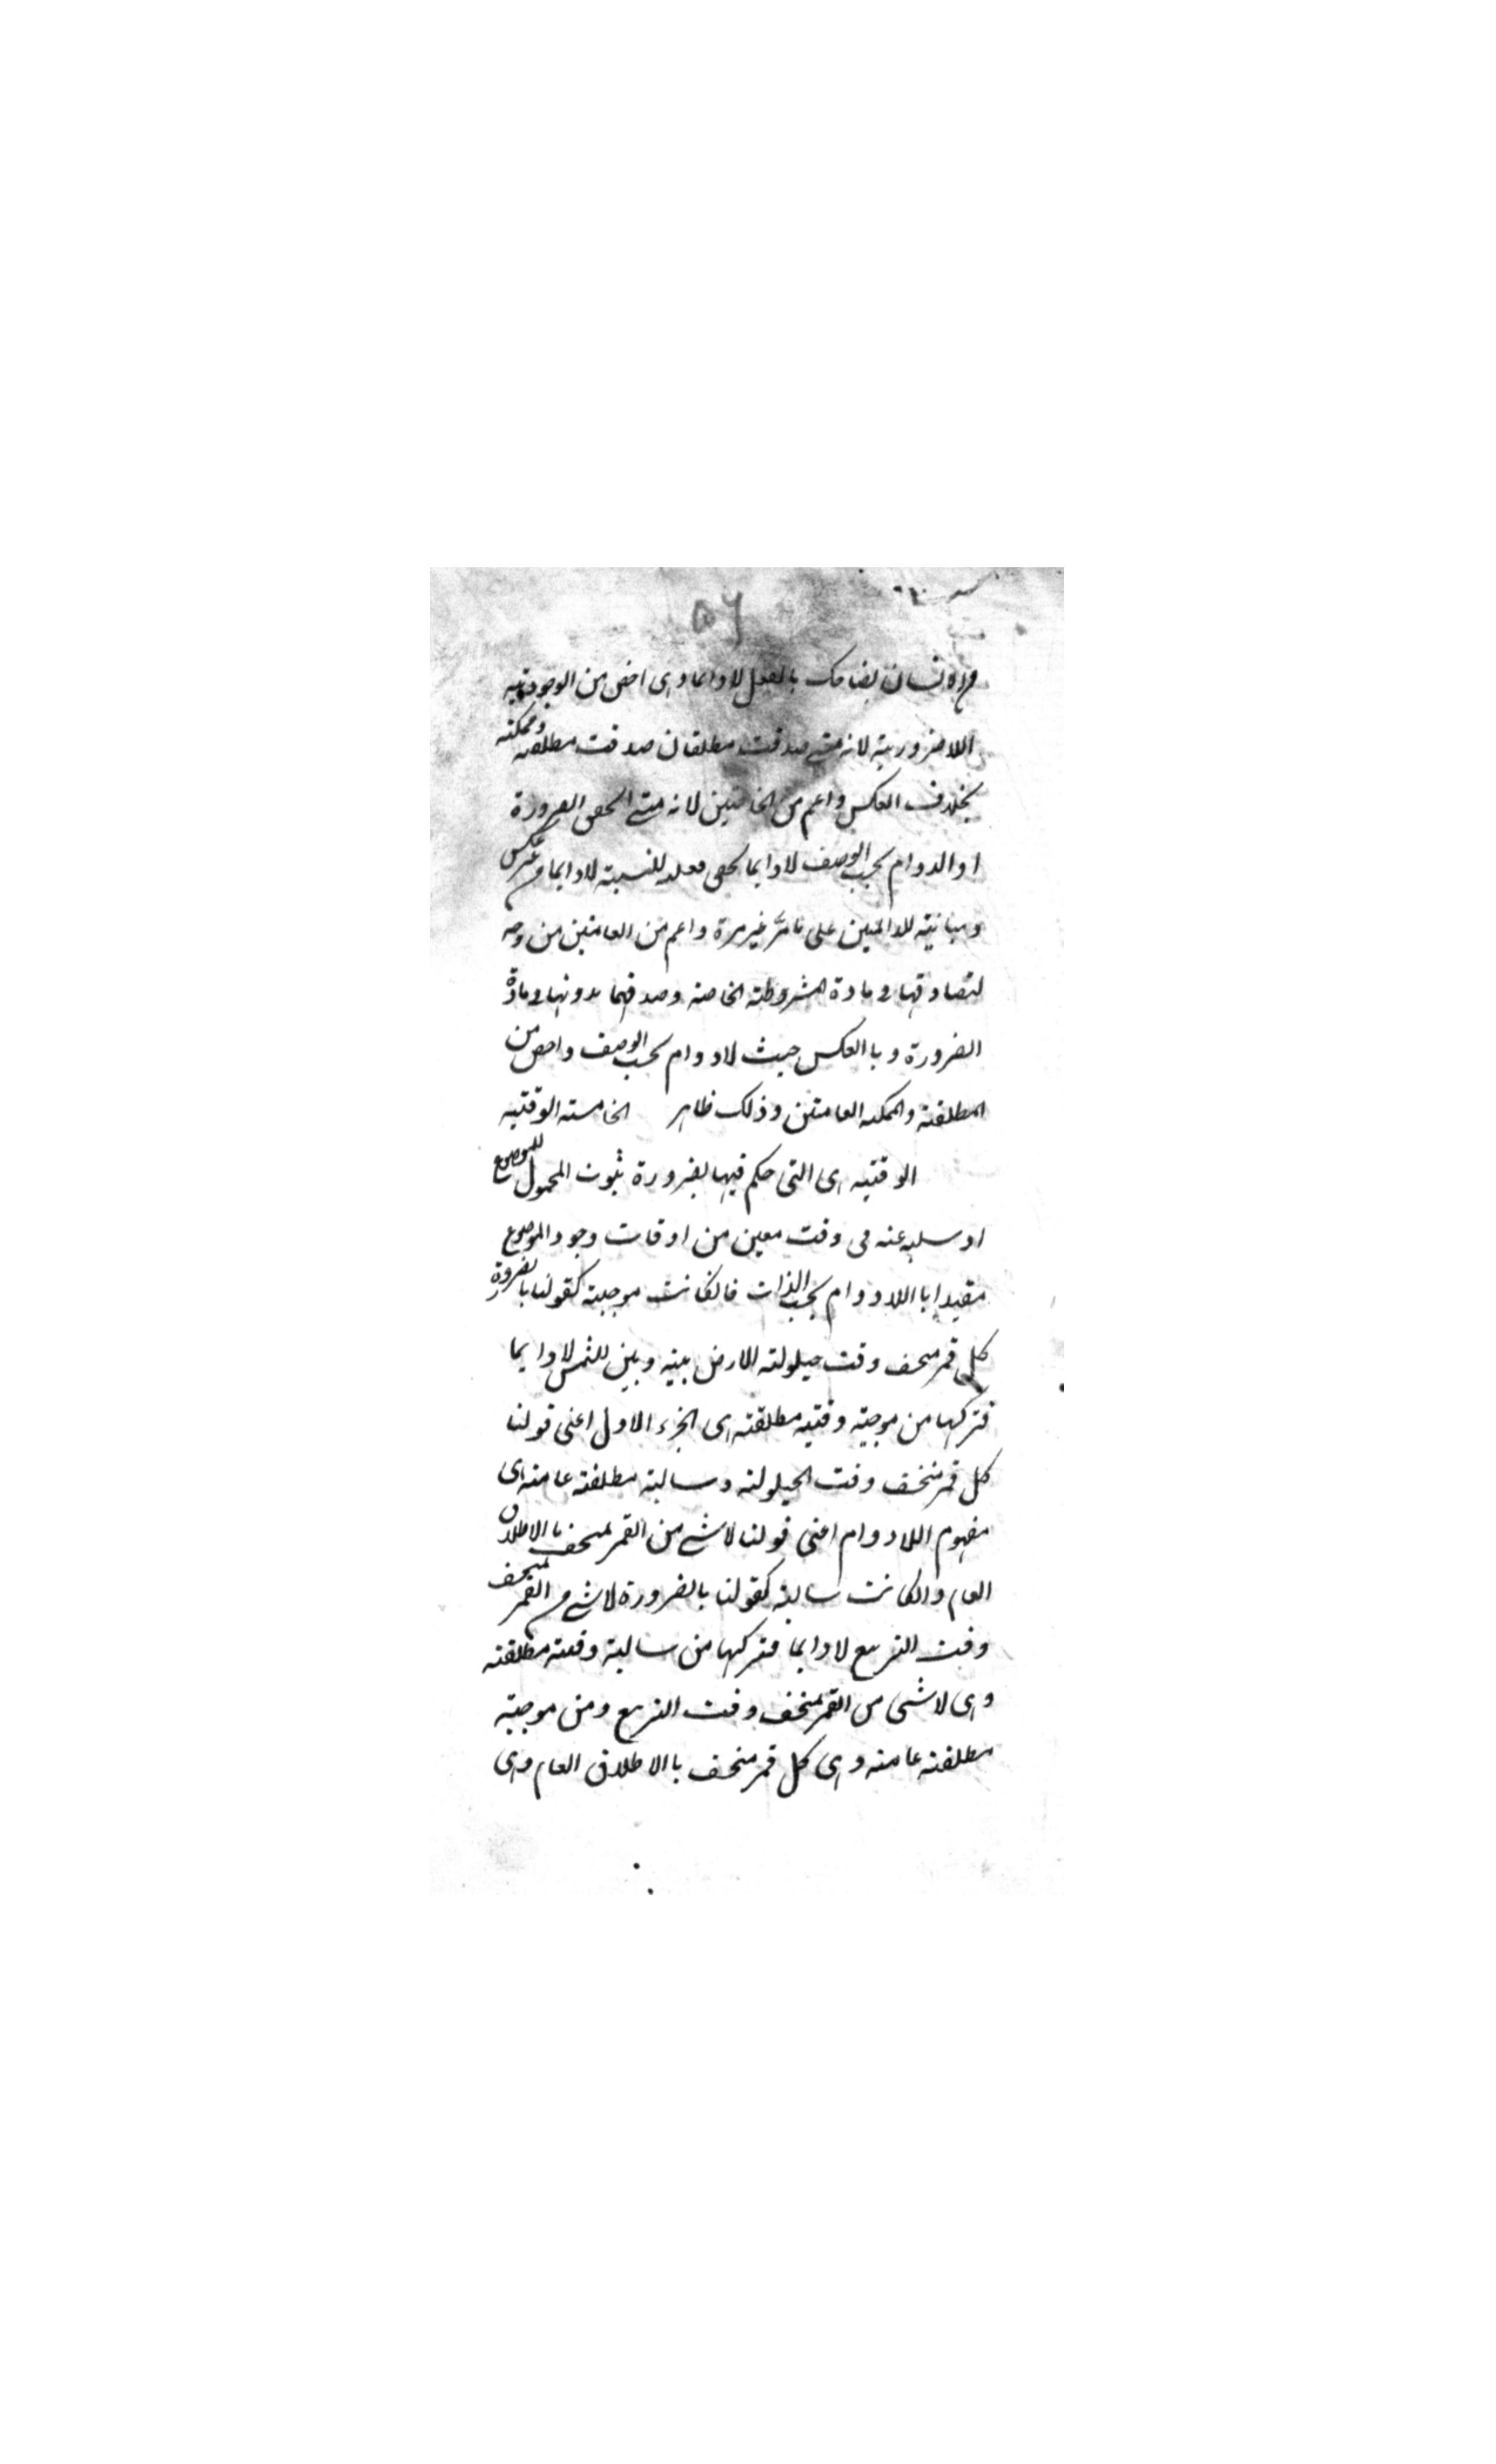 ٥٦
من الانسان بضاحك بالفعل لا دائما وهى اخص من الوجودية
اللاضرورية لانه متى صدقت مطلقتان صدقت مطلقه وممكنه
بخلاف العكس واعم من الخاصتين لانه متى تحقق الضرورة
او الدوام بحسب الوصف لا دايما تحقق فعلية النسبة لا دايما من غير عكس
ومباينة للدائمتين على ما مر غير مرة واعم من العامتين من وجه
لتصادقها فى مادة المشروطة الخاصه وصدقهما بدونها فى مادة
الضرورة وباالعكس حيث لا دوام بحسب الوصف واخص من
المطلقة والممكنه العامتين وذلك ظاهر الخامسة الوقتيه
الوقتيه هى التى حكم فيها بضرورة ثبوت المحمول للموضوع
او سلبه عنه فى وقت معين من اوقات وجود الموضوع
مقيدا باللادوام بحسب الذات فانكانت موجبة كقولنا بالضرورة
كل قمر منخسف وقت حيلولة الارض بينه وبين الشمس لا دايما
فتركبها من موجبة وقتيه مطلقة هى الجزء الاول اعنى قولنا
كل قمر منخسف وقت الحيلولة وسالبة مطلقة عامة هى
مفهوم اللادوام اعنى قولنا لا شئ من القمر بمنخسف بالاطلاق
العام وانكانت سالبة كقولنا بالضرورة لا شئ من القمر بمنخسف
وقت التربيع لا دايما فتركبها من سالبة وقتية مطلقة
وهى لا شئ من القمر بمنخسف وقت التربيع ومن موجبة
مطلقة عامة وهى كل قمر منخسف باالاطلاق العام وهى